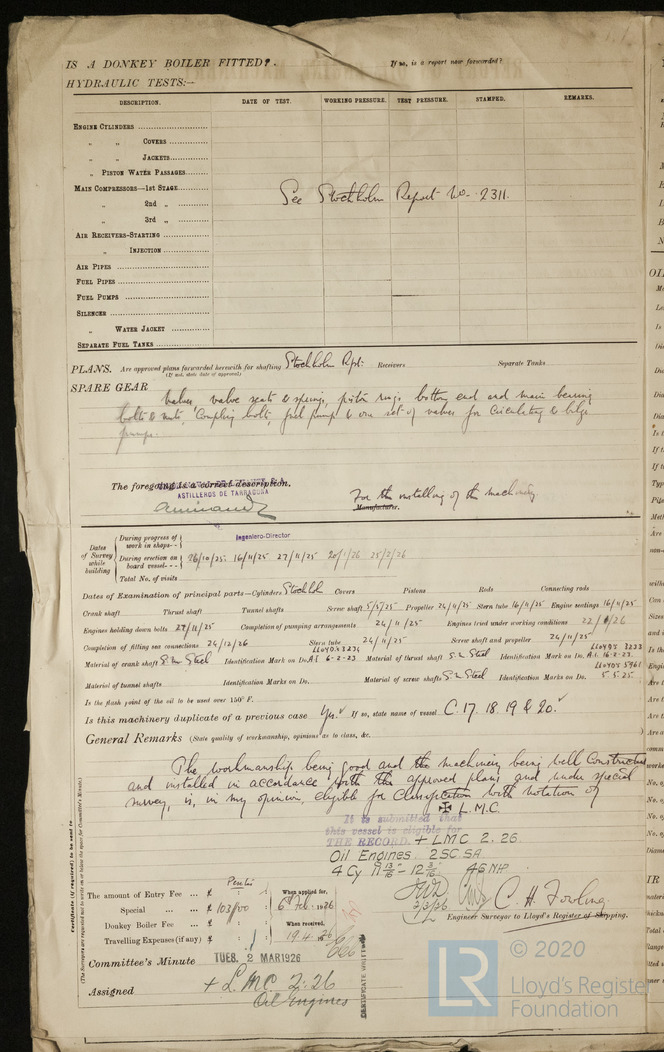 IS A DONKEY BOILER FITTED?
If so, is a report now forwarded?
HYDRAULIC TESTS:—
DESCRIPTION. DATE OF TEST. WORKING PRESSURE. TEST PRESSURE. STAMPED. REMARKS.
ENGINE CYLINDERS
" " COVERS
" " JACKETS
" PISTON WATER PASSAGES
MAIN COMPRESSORS—1st STAGE
" 2nd "
" 3rd "
See Stockholm Report No. 2311.
AIR RECEIVERS—STARTING
" INJECTION
AIR PIPES
FUEL PIPES
FUEL PUMPS
SILENCER
" WATER JACKET
SEPARATE FUEL TANKS
PLANS. Are approved plans forwarded herewith for shafting Stockholm Rpt. Receivers Separate Tanks
(If not, state date of approval)
SPARE GEAR
Valves, valve seats & springs, piston rings, bottom end and main bearing
bolts & nuts, Coupling bolts, fuel pump & one set of valves for Circulating & bilge
pumps.
The foregoing is a correct description.
ASTILLEROS DE TARRAGONA
For the installing of the machinery
Manufacturer.
Ingeniero-Director
Dates of Survey while building
During progress of work in shops - -
During erection on board vessel - - - 26/10/25 16/11/25 27/11/25 20/1/26 25/2/26
Total No. of visits
Dates of Examination of principal parts—Cylinders Stockholm Covers Pistons Rods Connecting rods
Crank shaft Thrust shaft Tunnel shafts Screw shaft 5/5/25 Propeller 24/11/25 Stern tube 16/11/25 Engine seatings 16/11/25
Engines holding down bolts 27/11/25 Completion of pumping arrangements 24/11/25 Engines tried under working conditions 22/1/26
Completion of fitting sea connections 24/12/26 Stern tube 24/11/25 Screw shaft and propeller 24/11/25
Material of crank shaft S.M. Steel Identification Mark on Do. LLOYDS 3234 A.I. 6-2-23 Material of thrust shaft S.M. Steel Identification Mark on Do. LLOYDS 3233 A.I. 16-2-23.
Material of tunnel shafts Identification Marks on Do. Material of screw shafts S.M. Steel Identification Marks on Do. LLOYDS 5961 5.5.25.
Is the flash point of the oil to be used over 150° F.
Is this machinery duplicate of a previous case Yes. If so, state name of vessel C. 17. 18. 19 & 20.
General Remarks (State quality of workmanship, opinions as to class, &c.
The workmanship being good and the machinery being well Constructed
and installed in accordance with the approved plans and under special
survey, is, in my opinion, eligible for Classification with notation of
✠ L.M.C.
It is submitted that
this vessel is eligible for
THE RECORD. + LMC 2.26
Oil Engines. 2SC.SA
4 Cy 11 13/16 - 12 3/16 46 NHP
3/3/26
C. H. Fowling
Engineer Surveyor to Lloyd's Register of Shipping.
Certificate (if required) to be sent to
(The Surveyors are requested not to write on or below the space for Committee's Minute.)
The amount of Entry Fee ... £ : : When applied for,
Special ... ... £ 103/00 : 6th Feb. 1926
Donkey Boiler Fee ... £ : : When received,
Travelling Expenses (if any) £ : : 19.4.26
Committee's Minute TUES. 2 MAR 1926
Assigned + L.M.C. 2.26
Oil Engines
CERTIFICATE WRITTEN
LR
© 2020
Lloyd's Register
Foundation